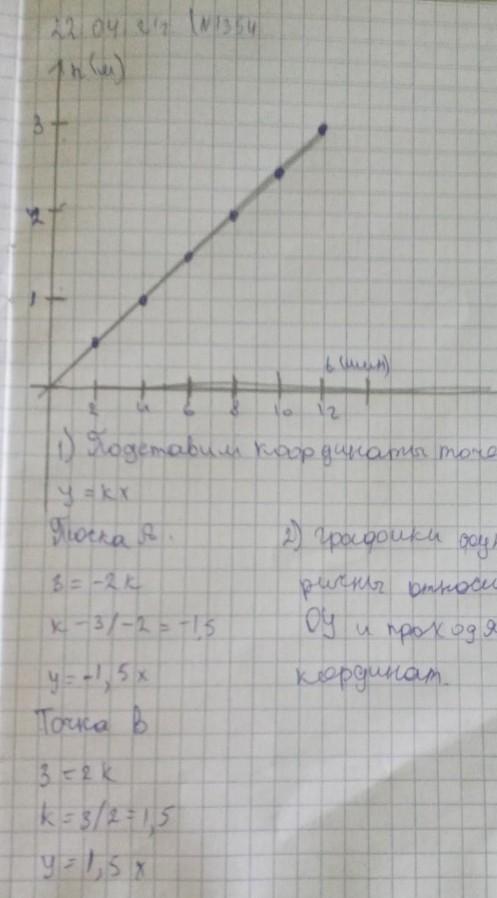 22 04 21г №1354
h(м)
3
2
1
t(мин)
2 4 6 8 10 12
1) Подставим координаты точе
y = kx
Точка А.
3 = -2k
k - 3/-2 = -1,5
y = -1,5x
Точка В
3 = 2k
k = 3/2 = 1,5
y = 1,5x
2) графики
ричны относи
ОУ и проходя
кординат.